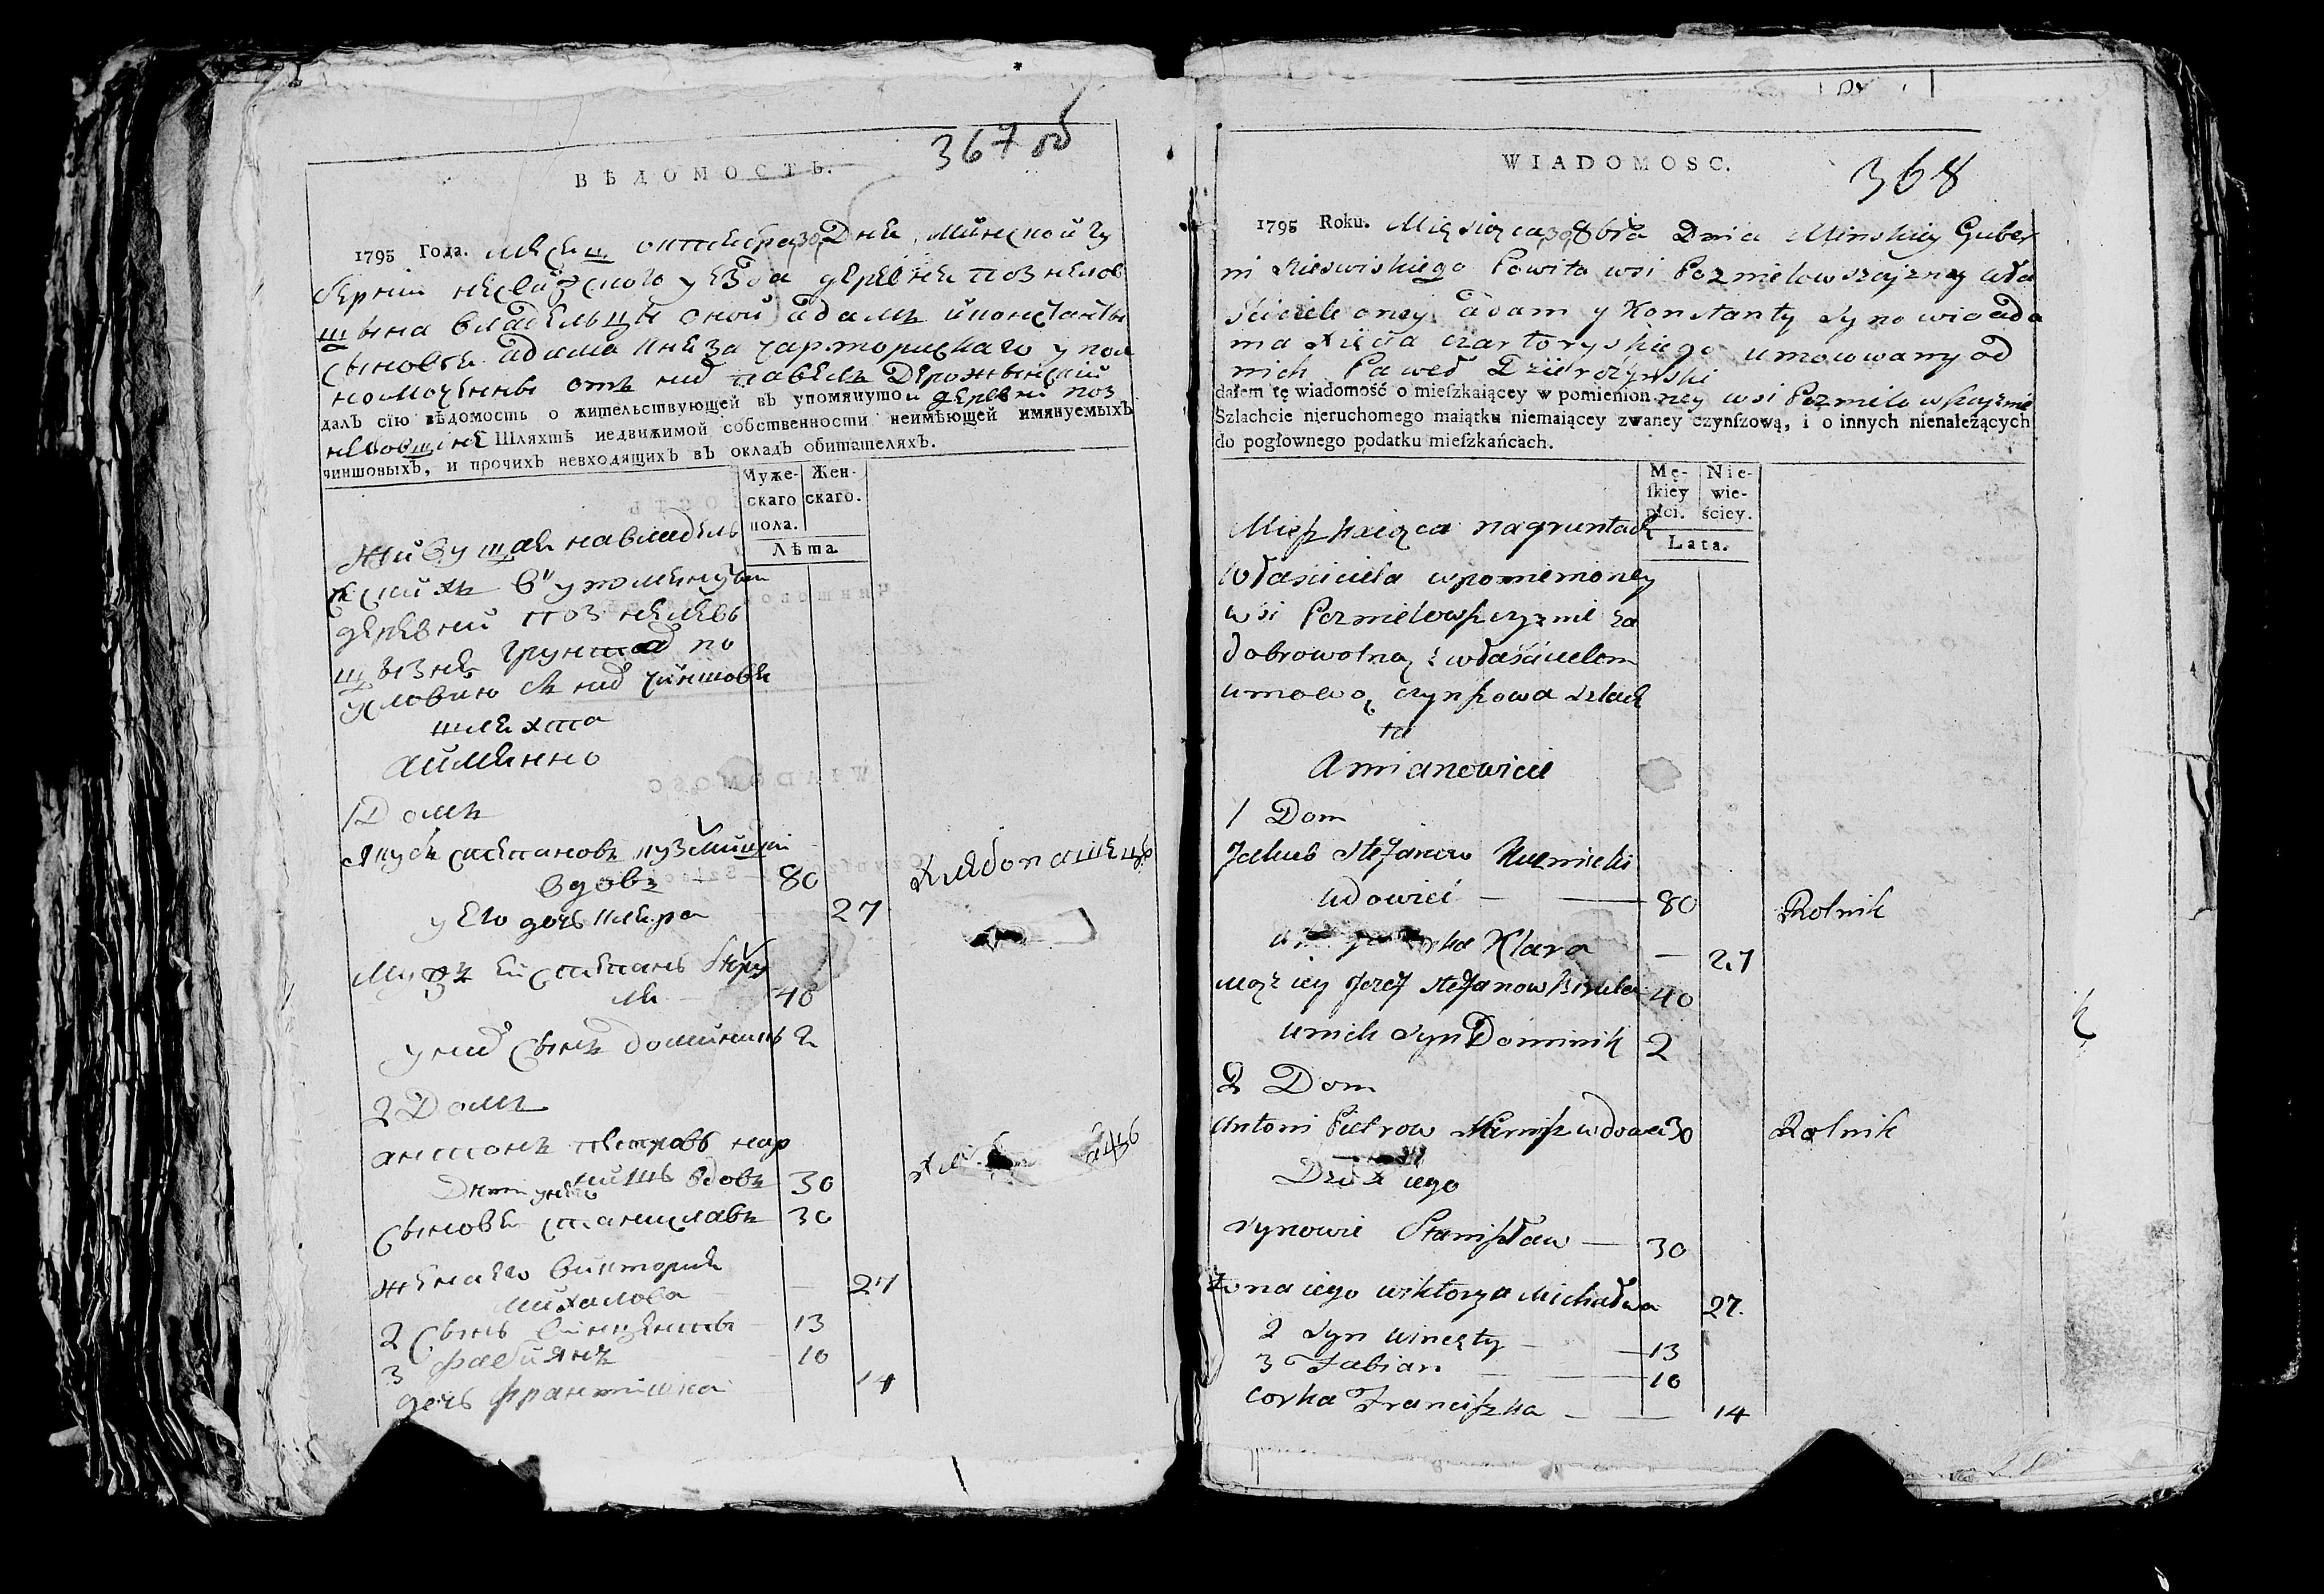 367 об
ВѢДОМОСТЬ.
1795 Года. месяц октебра 30 Дня Минской Гу
бернии несвизского уезда деревне познелов
щызна владельцы оной адам и константы
сыновя адама князя чарторыскаго упол
номоченны отъ них павелъ Дерожынский
далъ сїю вѣдомость о жительствующей въ упомянутой деревни поз
неловщине Шляхтѣ недвижимой собственности неимѣющей имянуемыхъ
чиншовыхъ, и прочихъ невходящихъ въ окладъ обитателяхъ.
Муже-
скаго
пола.
Жен-
скаго.
Лѣта
живущая на владель
ческих в упомянутой
деревни познелов
щызне грунтах по
условию съ ним чиншова
шляхта
аименно
1 Домъ
Якубъ степановъ кузмицки
вдовъ — 80
хлебопашецъ
у его дочь клара 27
Мужъ ей степанъ
40
у них сынъ доминикъ 2
2 Домъ
антонъ петровъ
вдовъ 30
Дети у него
Сыновя станиславъ 30
жена его виктория
михалова — 27
2 Сынъ винценты — 13
3 фабиянъ — 10
дочь франтишка 14
WIADOMOSC.
368
1795 Roku. Miesiąca 30 8bra Dnia Minskiey Guber
ni Nieswiskiego Powita wsi Poznielowszczyzny wła
sciciele oney Adam y Konstanty synowie ada
ma Xięcia czartoryskiego umocowany od
nich Paweł Dzierożynski
dałem tę wiadomość o mieſzkaiącey w pomienionney wsi Poznielowszczyznie
Szlachcie nieruchomego maiątku niemaiącey zwaney czynſzową, i o innych nienależących
do pogłownego podatku mieſzkańcach.
Mę-
ſkiey
płci.
Nie-
wie-
ściey.
Lata.
Mieszkaiąca na gruntach
Właściciela wpomienioney
wsi Poznielowszczyznie za
dobrowolną z właścicielem
umową czynszowa szlach
ta
A mianowicie
1 Dom
Jakub Stefanow Kuzmicki
wdowiec — 80 Rolnik
corka Klara — 27
mąż iey Jozef Stefanow 40
u nich Syn Dominik 2
2 Dom
Antoni Piotrow wdowiec 30 Rolnik
Dzieci iego
synowie Stanisław — 30
żona iego wiktorya Michałowa 27.
2 Syn Wincęty — 13
3 Fabian — 10
corka Franciszka — 14